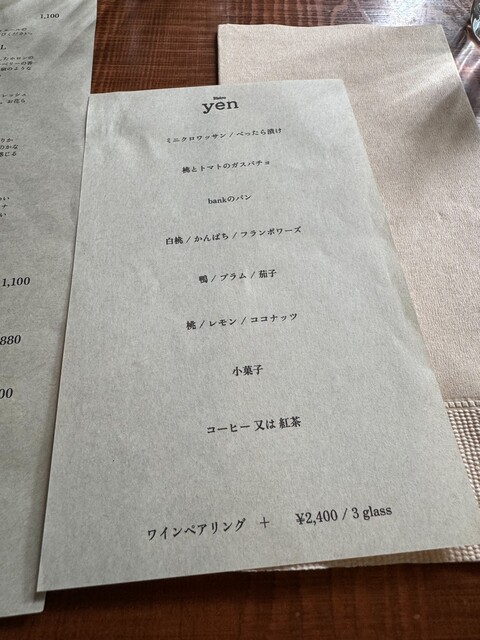 1,100
1,100
880
00
Bistro
yen
ミニクロワッサン / べったら漬け
桃とトマトのガスパチョ
bankのパン
白桃 / かんぱち / フランボワーズ
鴨 / プラム / 茄子
桃 / レモン / ココナッツ
小菓子
コーヒー 又は 紅茶
ワインペアリング + ¥2,400 / 3 glass